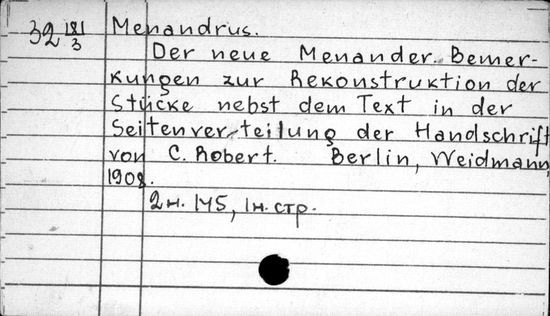 32 181/3 Menandrus.
Der neue Menander. Bemer-
kungen zur Rekonstruktion der
Stücke nebst dem Text in der
Seitenverteilung der Handschrift
von C. Robert. Berlin, Weidmann,
1908.
2н. 145, 1н. стр.